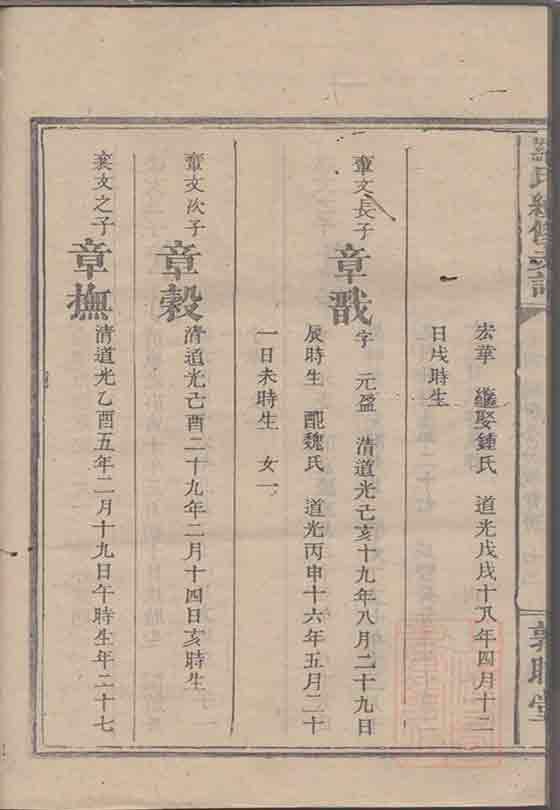 氏續修支譜
敦睦堂
宏華 繼娶鍾氏 道光戊戌十八年四月十二
日戌時生
章文長子
章戩
字 元盈 清道光己亥十九年八月二十九日
辰時生 配魏氏 道光丙申十六年五月二十
一日未時生 女一
章文次子
章榖
清道光己酉二十九年二月十四日亥時生
奕文之子
章撫
清道光乙酉五年二月十九日午時生年二十七